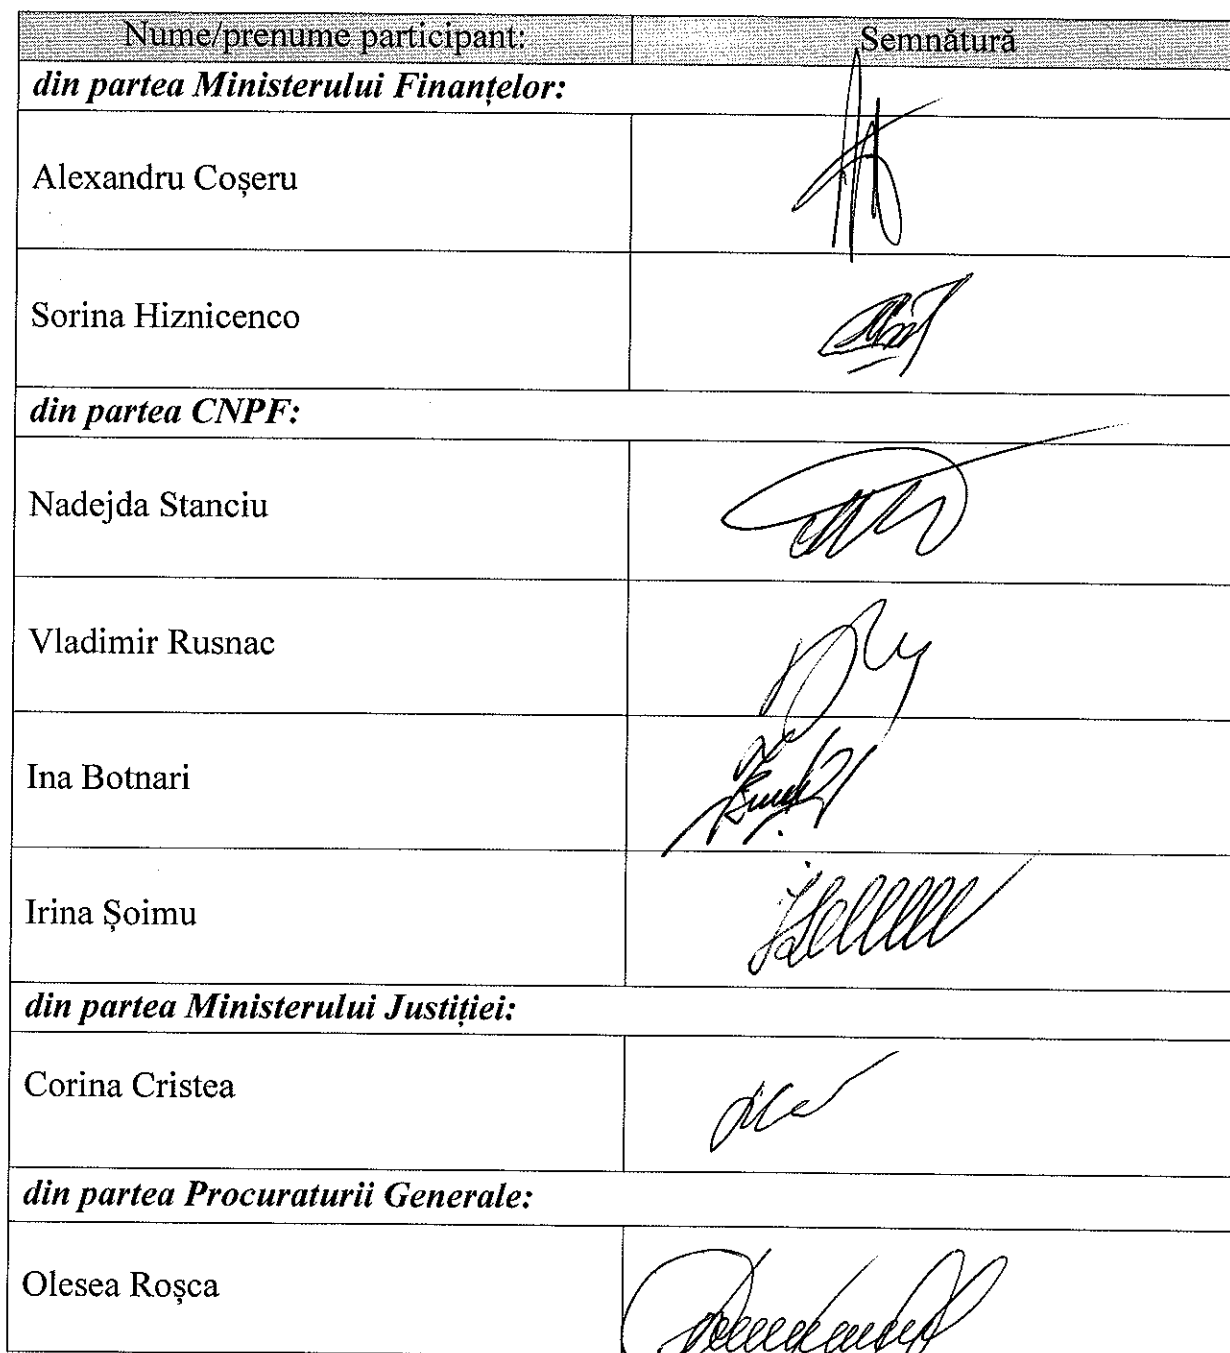 Nume/prenume participant: Semnătură
din partea Ministerului Finanțelor:
Alexandru Coșeru
Sorina Hiznicenco
din partea CNPF:
Nadejda Stanciu
Vladimir Rusnac
Ina Botnari
Irina Șoimu
din partea Ministerului Justiției:
Corina Cristea
din partea Procuraturii Generale:
Olesea Roșca